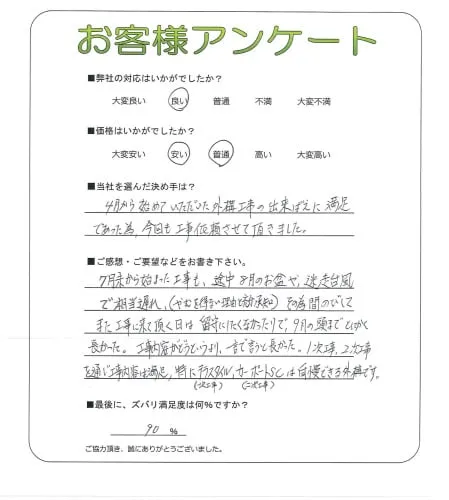 お客様アンケート
■弊社の対応はいかがでしたか？
大変良い　良い　普通　不満　大変不満
■価格はいかがでしたか？
大変安い　安い　普通　高い　大変高い
■当社を選んだ決め手は？
4月から始めていただいた外構工事の出来ばえに満足
であった為、今回も工事依頼させて頂きました。
■ご感想・ご要望などをお書き下さい。
7月末から始まった工事も、途中8月のお盆や、迷走台風
で相当遅れ、（やむを得ない理由と効承知）その為間のびして
また工事に来て頂く日は留守にしたくなかったりで、9月の頭までとにかく
長かった。工事内容がどうというより、一言で言うと長かった。1次工事、2次工事
を通じ工事内容は満足、特にテラスタイル、カーポートSCは自慢できる外構です。
（一次工事）　（二次工事）
■最後に、ズバリ満足度は何%ですか？
90 %
ご協力頂き、誠にありがとうございました。